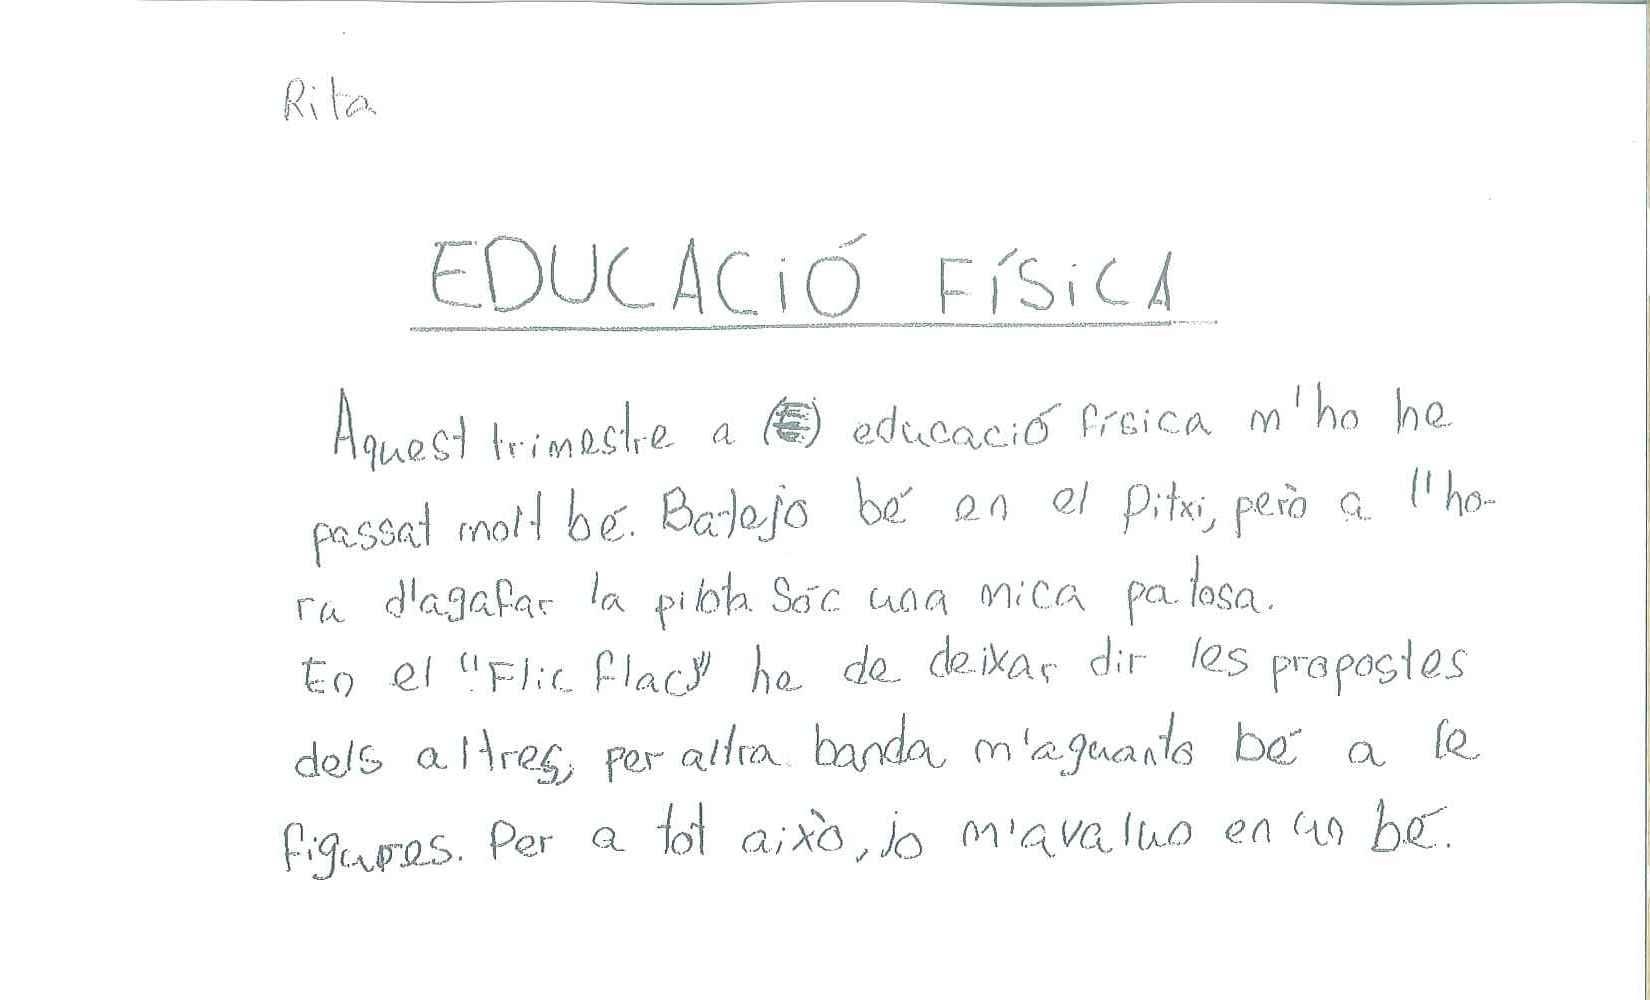 Rita
EDUCACIÓ FÍSICA
Aquest trimestre a (E) educació física m'ho he
passat molt bé. Batejo bé en el Pitxi, però a l'ho-
ra d'agafar la pilota Sóc una mica patosa.
En el "Flic flac" he de deixar dir les propostes
dels altres, per altra banda m'aguanto bé a le
figures. Per a tot això, jo m'avaluo en un bé.